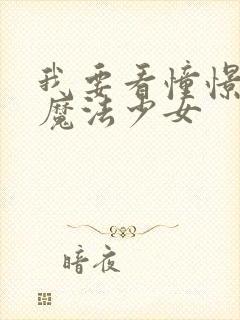 我要看憧憬
魔法少女
暗夜